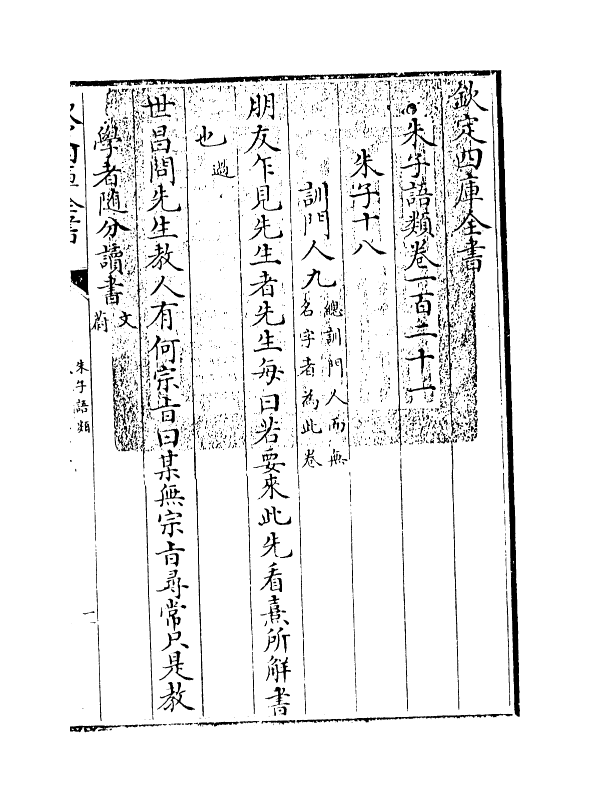 欽定四庫全書
朱子語類卷一百二十一
朱子十八
訓門人九總訓門人而無
名字者為此卷
朋友乍見先生者先生每曰若要來此先看熹所解書
也過
世昌問先生教人有何宗旨曰某無宗旨尋常只是教
學者隨分讀書文
蔚
朱子語類
一